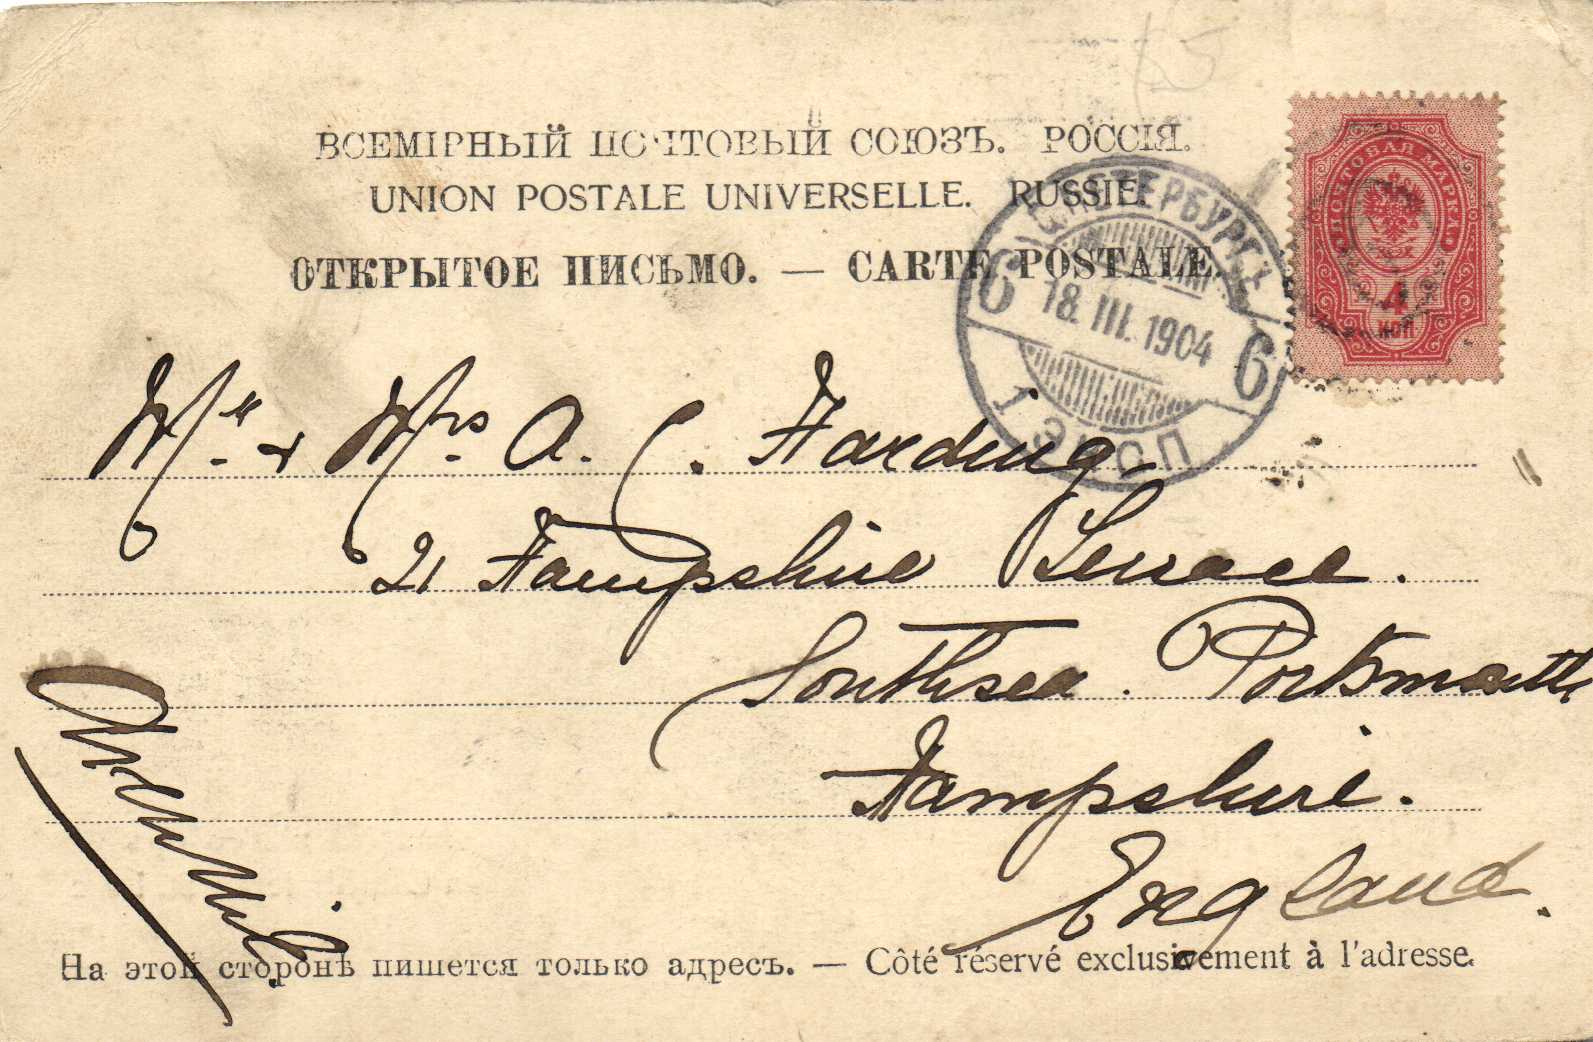 ВСЕМІРНЫЙ ПОЧТОВЫЙ СОЮЗЪ. РОССІЯ.
UNION POSTALE UNIVERSELLE. RUSSIE.
ОТКРЫТОЕ ПИСЬМО. — CARTE POSTALE.
ПОЧТОВАЯ МАРКА
4
КОП
С.ПЕТЕРБУРГЪ
6 18.III.1904 6
1 ЭКСП
Mr. & Mrs. A. C. Harding
21 Hampshire Terrace.
Southsea. Portsmouth
Hampshire.
England.
На этой сторонѣ пишется только адресъ. — Côté réservé exclusivement à l'adresse.